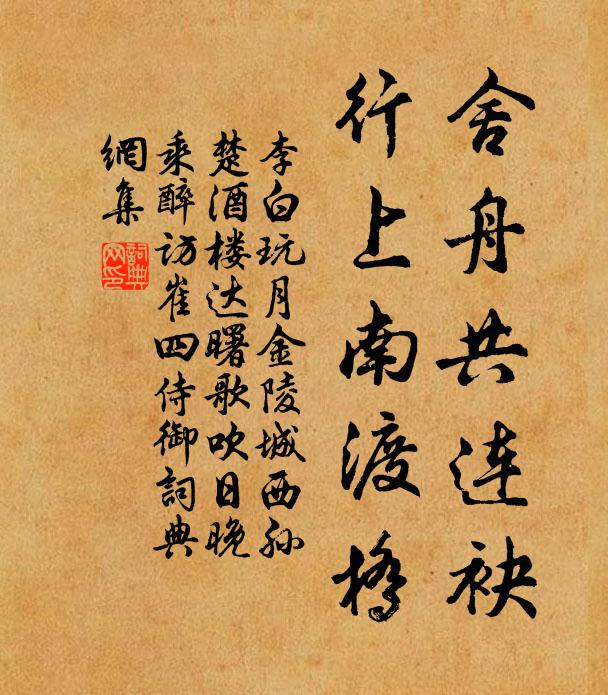 舍舟共连袂
行上南渡桥
李白玩月金陵城西孙
楚酒楼达曙歌吹日晚
乘醉访崔四侍御詞典
網集
詞典
网印